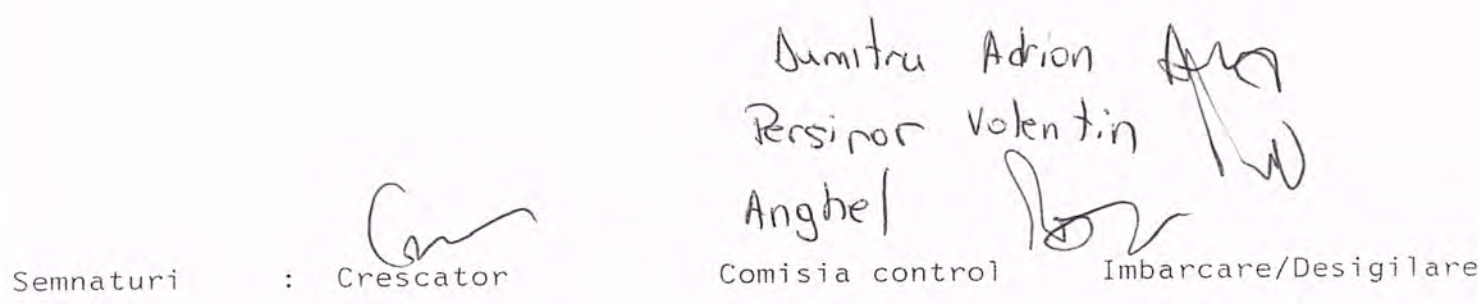 Dumitru Adrian
Persinor Valentin
Anghel
Semnaturi : Crescator Comisia control Imbarcare/Desigilare